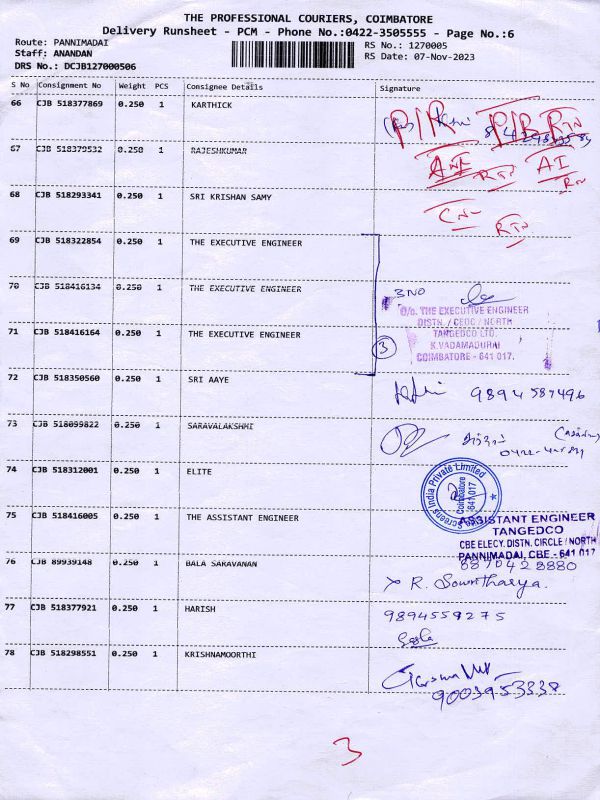 THE PROFESSIONAL COURIERS, COIMBATORE
Delivery Runsheet - PCM - Phone No.:0422-3505555 - Page No.:6
Route: PANNIMADAI
RS No.: 1270005
Staff: ANANDAN
RS Date: 07-Nov-2023
DRS No.: DCJB127000506
S No Consignment No Weight PCS Consignee Details Signature
66 CJB 518377869 0.250 1 KARTHICK
P/R P/R RTN
67 CJB 518379532 0.250 1 RAJESHKUMAR
RTN AI RTN
68 CJB 518293341 0.250 1 SRI KRISHAN SAMY
RTN
69 CJB 518322854 0.250 1 THE EXECUTIVE ENGINEER
70 CJB 518416134 0.250 1 THE EXECUTIVE ENGINEER
3 NO
O/o. THE EXECUTIVE ENGINEER
DISTN. / CEDC / NORTH
71 CJB 518416164 0.250 1 THE EXECUTIVE ENGINEER
TANGEDCO LTD.
3
K.VADAMADURAI
COIMBATORE - 641 017.
72 CJB 518350560 0.250 1 SRI AAYE
9894587496
73 CJB 518099822 0.250 1 SARAVALAKSHMI
74 CJB 518312001 0.250 1 ELITE
Screens India Private Limited
Coimbatore
-641 017
75 CJB 518416005 0.250 1 THE ASSISTANT ENGINEER
ASSISTANT ENGINEER
TANGEDCO
CBE ELECY. DISTN. CIRCLE / NORTH
PANNIMADAI, CBE - 641 017
76 CJB 89939148 0.250 1 BALA SARAVANAN
8870428880
R. Sowntharya.
77 CJB 518377921 0.250 1 HARISH
9894559275
78 CJB 518298551 0.250 1 KRISHNAMOORTHI
9003953338
3